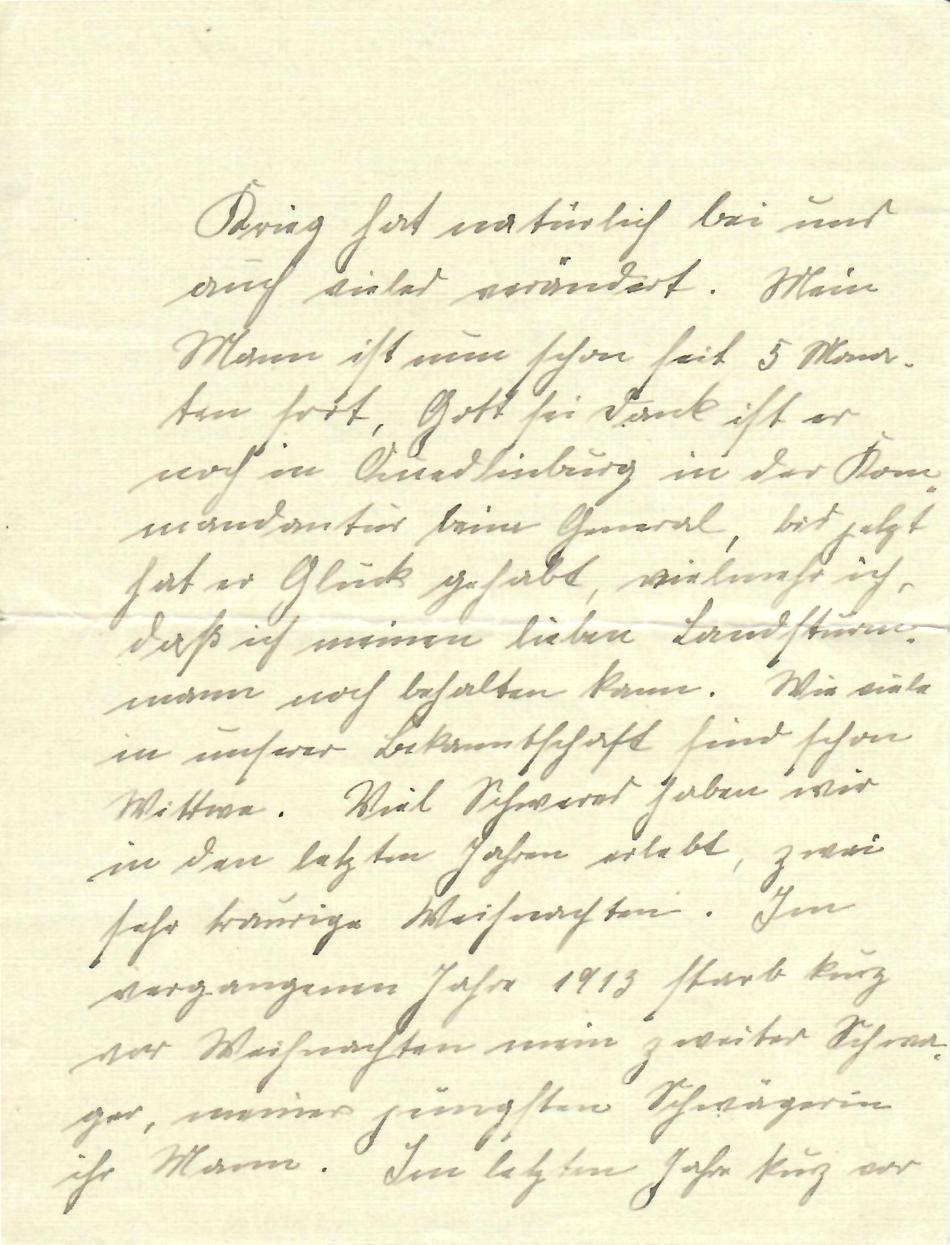 Krieg hat natürlich bei uns
auch vieles verändert. Mein
Mann ist nun schon seit 5 Mona-
ten fort, Gott sei Dank ist er
noch in Quedlinburg in der Kom-
mandantur beim General, bis jetzt
hat er Glück gehabt, vielmehr ich,
daß ich meinen lieben Landsturm-
mann noch behalten kann. Wie viele
in unserer Bekanntschaft sind schon
Wittwe. Viel Schweres haben wir
in den letzten Jahren erlebt, zwei
sehr traurige Weihnachten. Im
vergangenen Jahre 1913 starb kurz
vor Weihnachten mein zweiter Schwa-
ger, meiner jüngsten Schwägerin
ihr Mann. Im letzten Jahre kurz vor